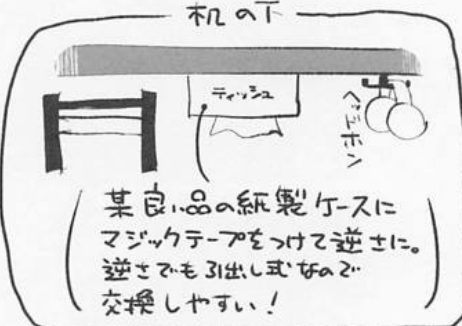 机の下
ティッシュ
ヘッドホン
某良い品の紙製ケースに
マジックテープをつけて逆さに。
逆さでも引出し式なので
交換しやすい!